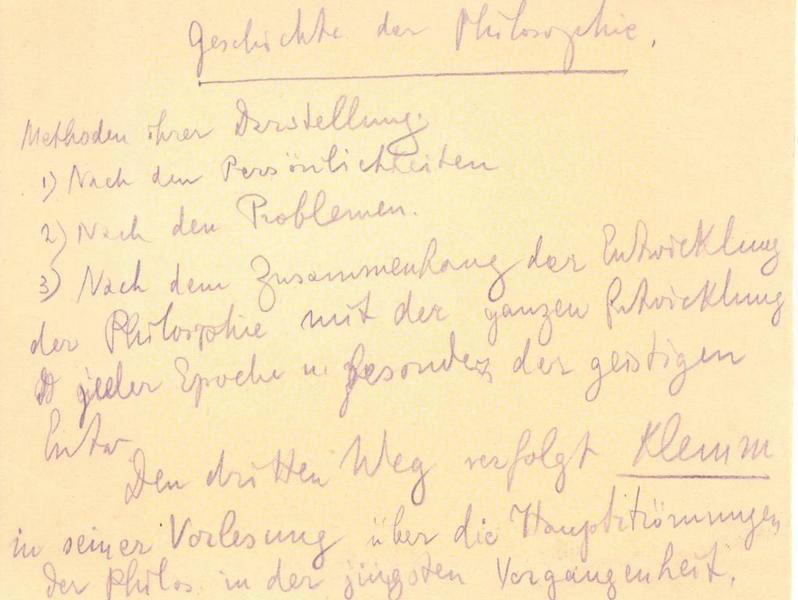 Geschichte der Philosophie.
Methoden ihrer Darstellung:
1) Nach den Persönlichkeiten
2) Nach den Problemen.
3) Nach dem Zusammenhang der Entwicklung
der Philosophie mit der ganzen Entwicklung
jeder Epoche u. besonders der geistigen
Entw.
Den dritten Weg verfolgt Klemm
in seiner Vorlesung über die Hauptströmungen
der Philos. in der jüngsten Vergangenheit.